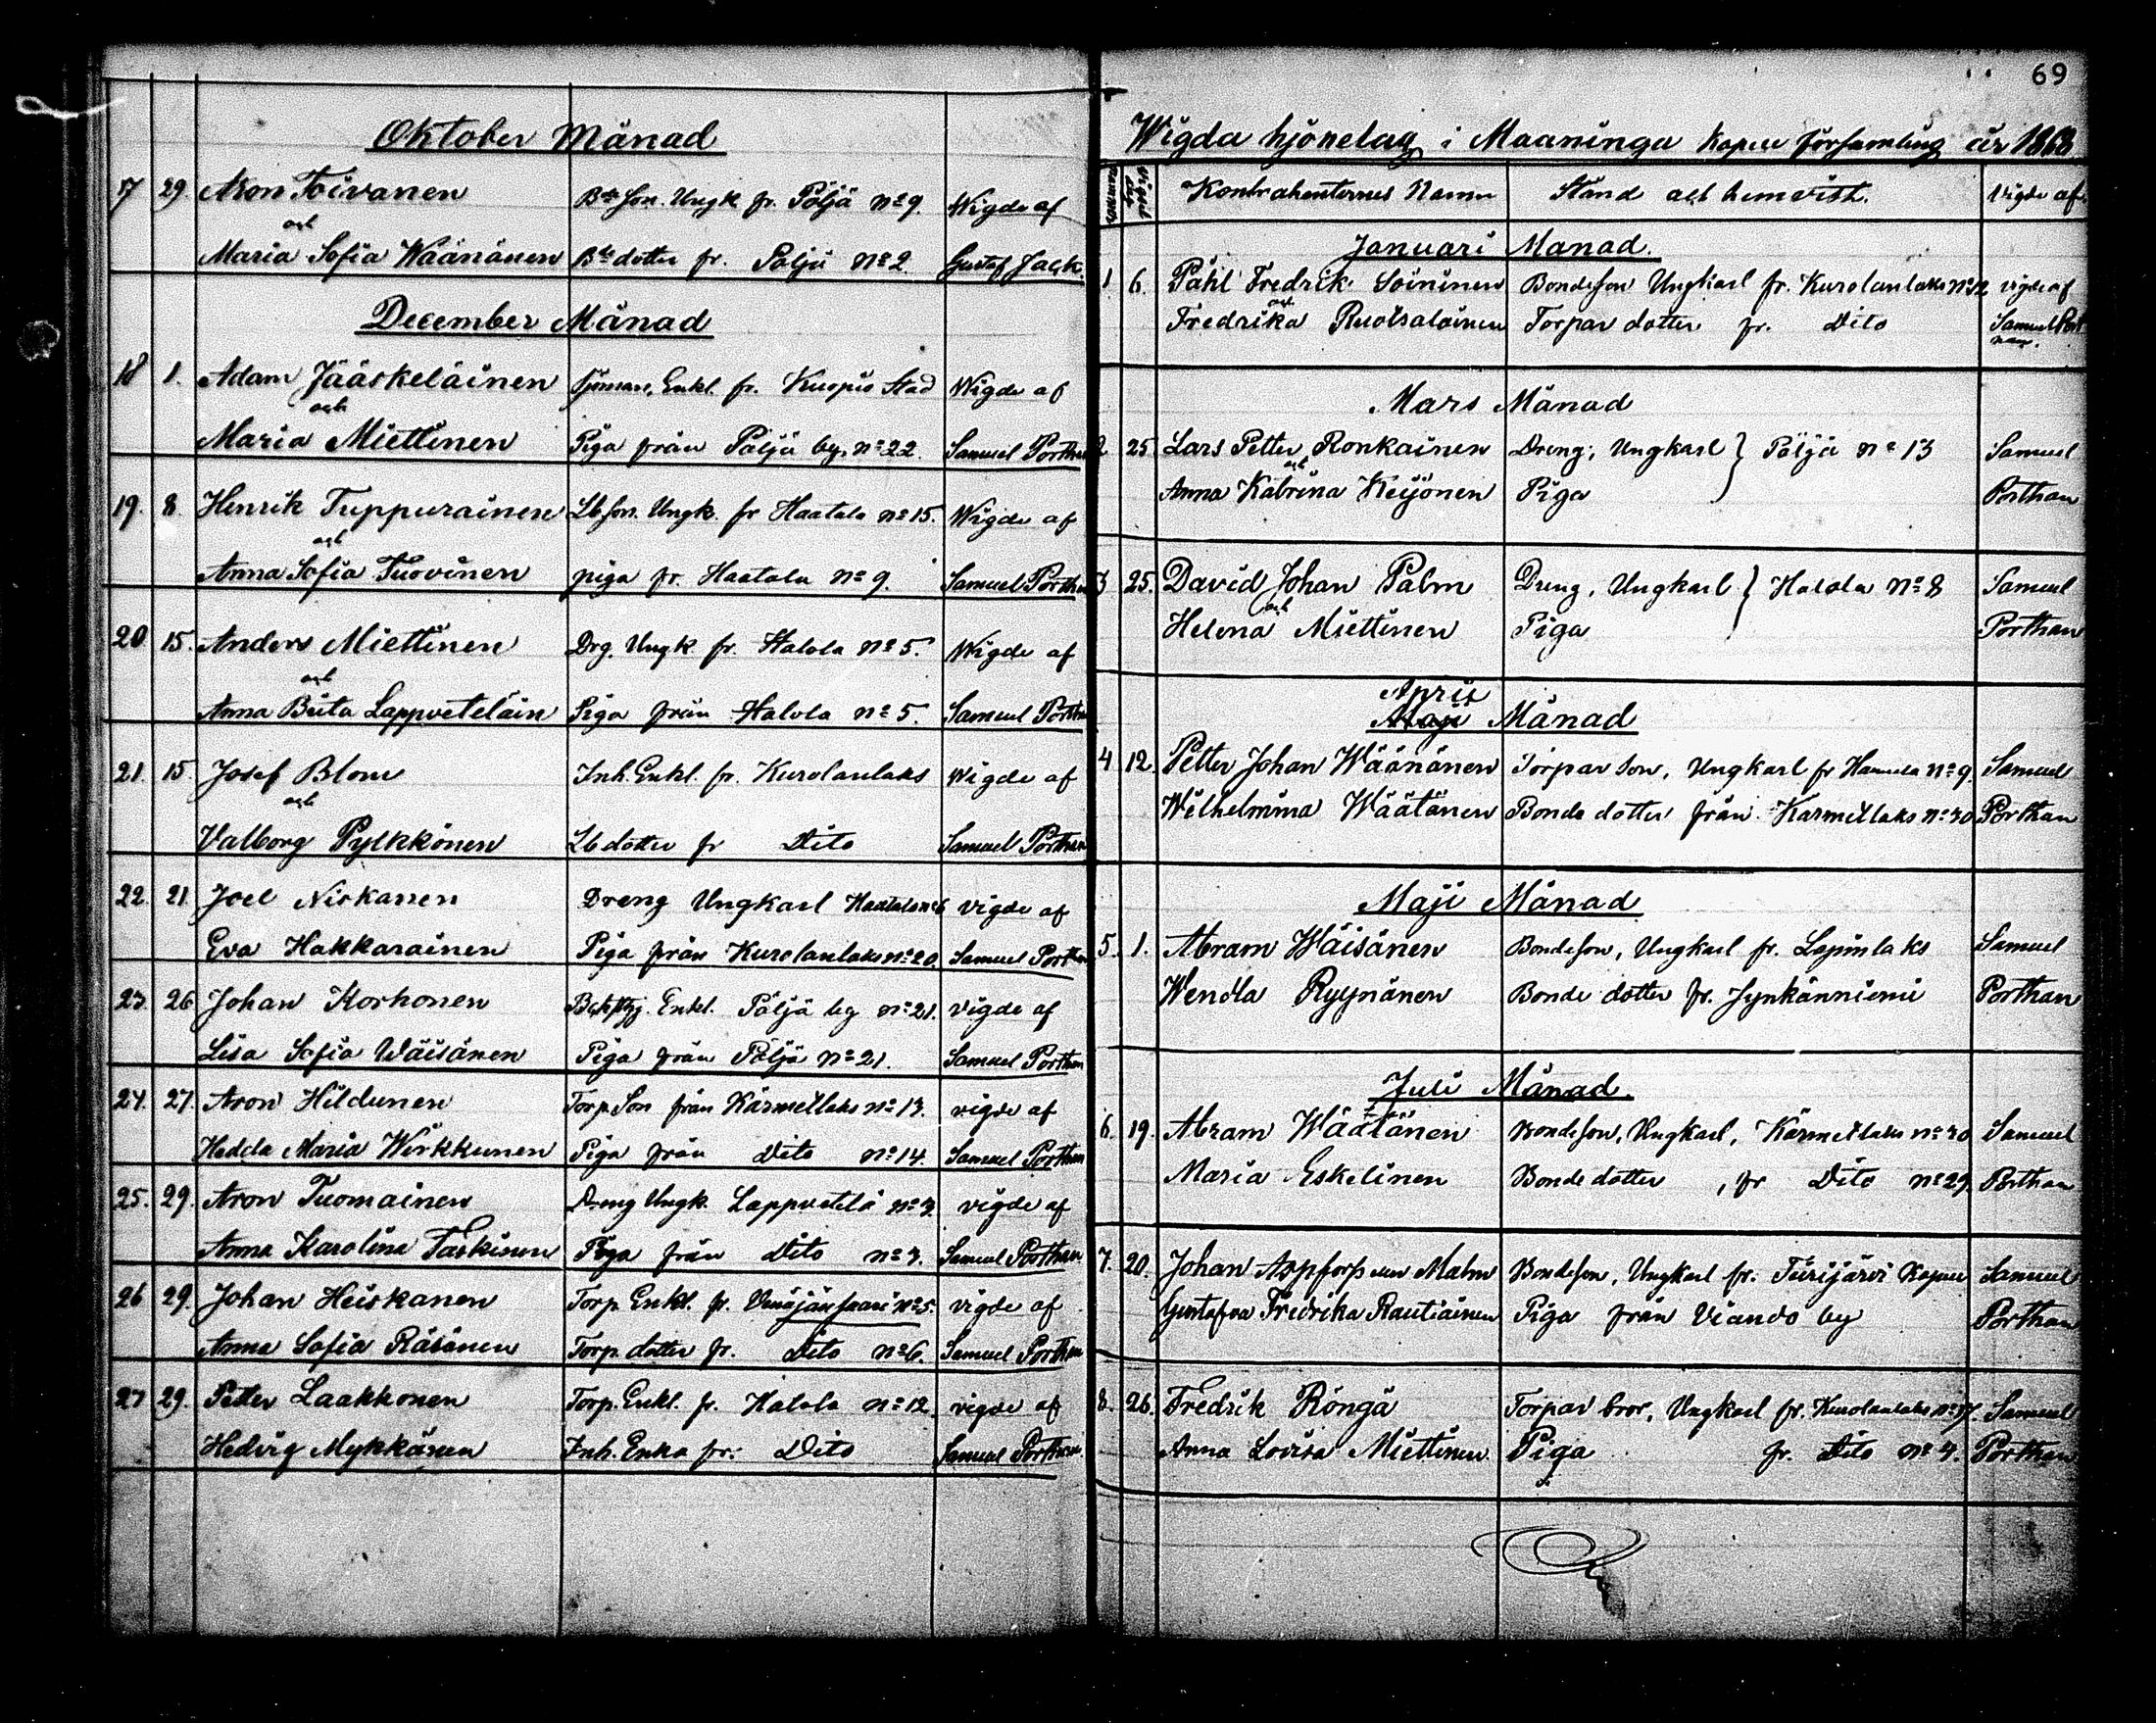 Oktober Månad
17 29. Aron Toivanen Bde Son. Ungk fr. Pöljä No 9. Wigde af
och
Maria Sofia Wäänänen Bde dotter fr. Pöljä No 2 Gustaf Jack.
December Månad
18 1. Adam Jääskeläinen Sjöman, Enkl. fr. Kuopio Stad Wigde af
och
Maria Miettinen Piga från Pöljä by, No 22. Samuel Porthan
19. 8. Henrik Tuppurainen Lb son. Ungk. fr Haatala No 15. Wigde af
och
Anna Sofia Tuovinen piga fr. Haatala No 9. Samuel Porthan
20 15. Anders Miettinen Drg. Ungk fr. Halola No 5. Wigde af
och
Anna Brita Lappveteläin Piga från Halola No 5. Samuel Porthan
21. 15. Josef Blom Inh. Enkl. fr. Kurolanlaks Wigde af
och
Valborg Pylkkönen Lb dotter fr Dito Samuel Porthan
22. 21. Joel Niskanen Dreng Ungkarl Haatala No 6 vigde af
Eva Hakkarainen Piga från Kurolanlaks No 20. Samuel Porthan
23. 26 Johan Korhonen Enkl. Pöljä by No 21. vigde af
Lisa Sofia Wäisänen Piga från Pöljä No 21. Samuel Porthan
24. 27. Aron Hildunen Torp. Son från Kärmetlaks No 13. vigde af
Hedda Maria Wirkkunen Piga från Dito No 14. Samuel Porthan
25. 29. Aron Tuomainen Dreng Ungk. Lappvetelä No 3. vigde af
Anna Karolina Taskinen Piga från Dito No 3. Samuel Porthan
26 29. Johan Heiskanen Torp. Enkl. fr. Venäjänsaari No 5. vigde af
Anna Sofia Räsänen Torp. dotter fr. Dito No 6. Samuel Porthan
27 29. Petter Laakkonen Torp. Enkl. fr. Halola No 12. vigde af
Hedvig Mykkänen Inh. Enka fr. Dito Samuel Porthan.
69
Wigda hjonelag i Maaninga Kapell församling år 1868
Kontrahenternes Namn Stånd och hemvist. Vigde af.
Januari Månad.
1 6. Påhl Fredrik Soininen Bondeson Ungkarl fr. Kurolanlaks No 12 vigde af
och
Fredrika Ruotsalainen Torpar dotter fr. Dito Samuel Port
han.
Mars Månad
2 25 Lars Petter Ronkainen Dreng, Ungkarl } Pöljä No 13 Samuel
och
Anna Katrina Keijonen Piga Porthan
3 25. David Johan Palm Dreng, Ungkarl } Halola No 8 Samuel
och
Helena Miettinen Piga Porthan
April
Maji Månad
4 12. Petter Johan Wäänänen Torpar son, Ungkarl fr No 9. Samuel
Wilhelmina Wäätänen Bonde dotter från Kärmetlaks No 30 Porthan
Maji Månad
5. 1. Abram Wäisänen Bondeson, Ungkarl fr. Lapinlaks Samuel
Wendla Ryynänen Bonde dotter fr. Jynkänniemi Porthan
Juli Månad.
6. 19. Abram Wäätänen Bondeson, Ungkarl, Kärmetlaks No 30 Samuel
Maria Eskelinen Bonde dotter, fr Dito No 29. Porthan
7. 20. Johan Malm Bondeson, Ungkarl fr. Kapell Samuel
Gustafva Fredrika Rautiainen Piga från Viando by Porthan
8. 26. Fredrik Röngä Torpar bror, Ungkarl fr. Kurolanlaks No 17. Samuel
Anna Lovisa Miettinen Piga fr. Dito No 4. Porthan